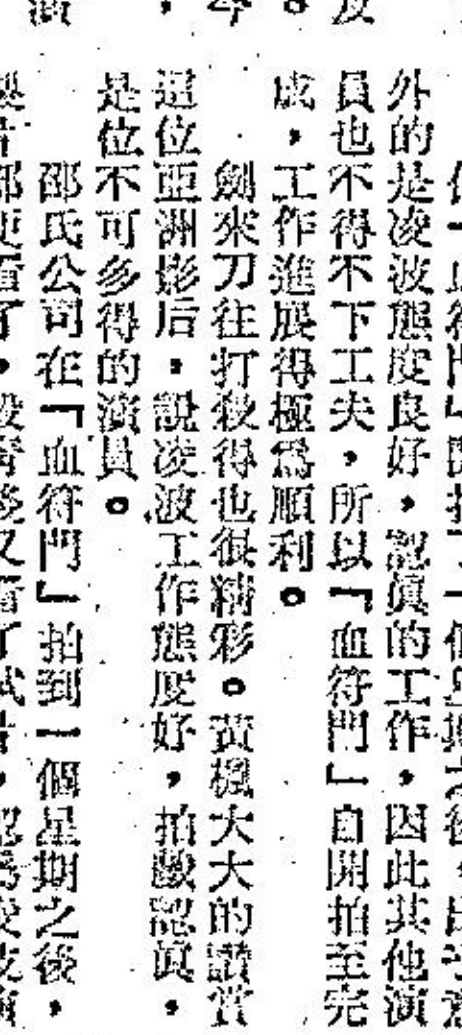 及
。
今
,
演
「血符門」開拍了一個星期之後,出乎意
外的是凌波態度良好,認眞的工作,因此其他演
員也不得不下工夫,所以「血符門」自開拍至完
成,工作進展得極爲順利。
劍來刀往打殺得也很精彩。黃楓大大的讚賞
這位亞洲影后,說凌波工作態度好,拍戲認眞,
是位不可多得的演員。
邵氏公司在「血符門」拍到一個星期之後,